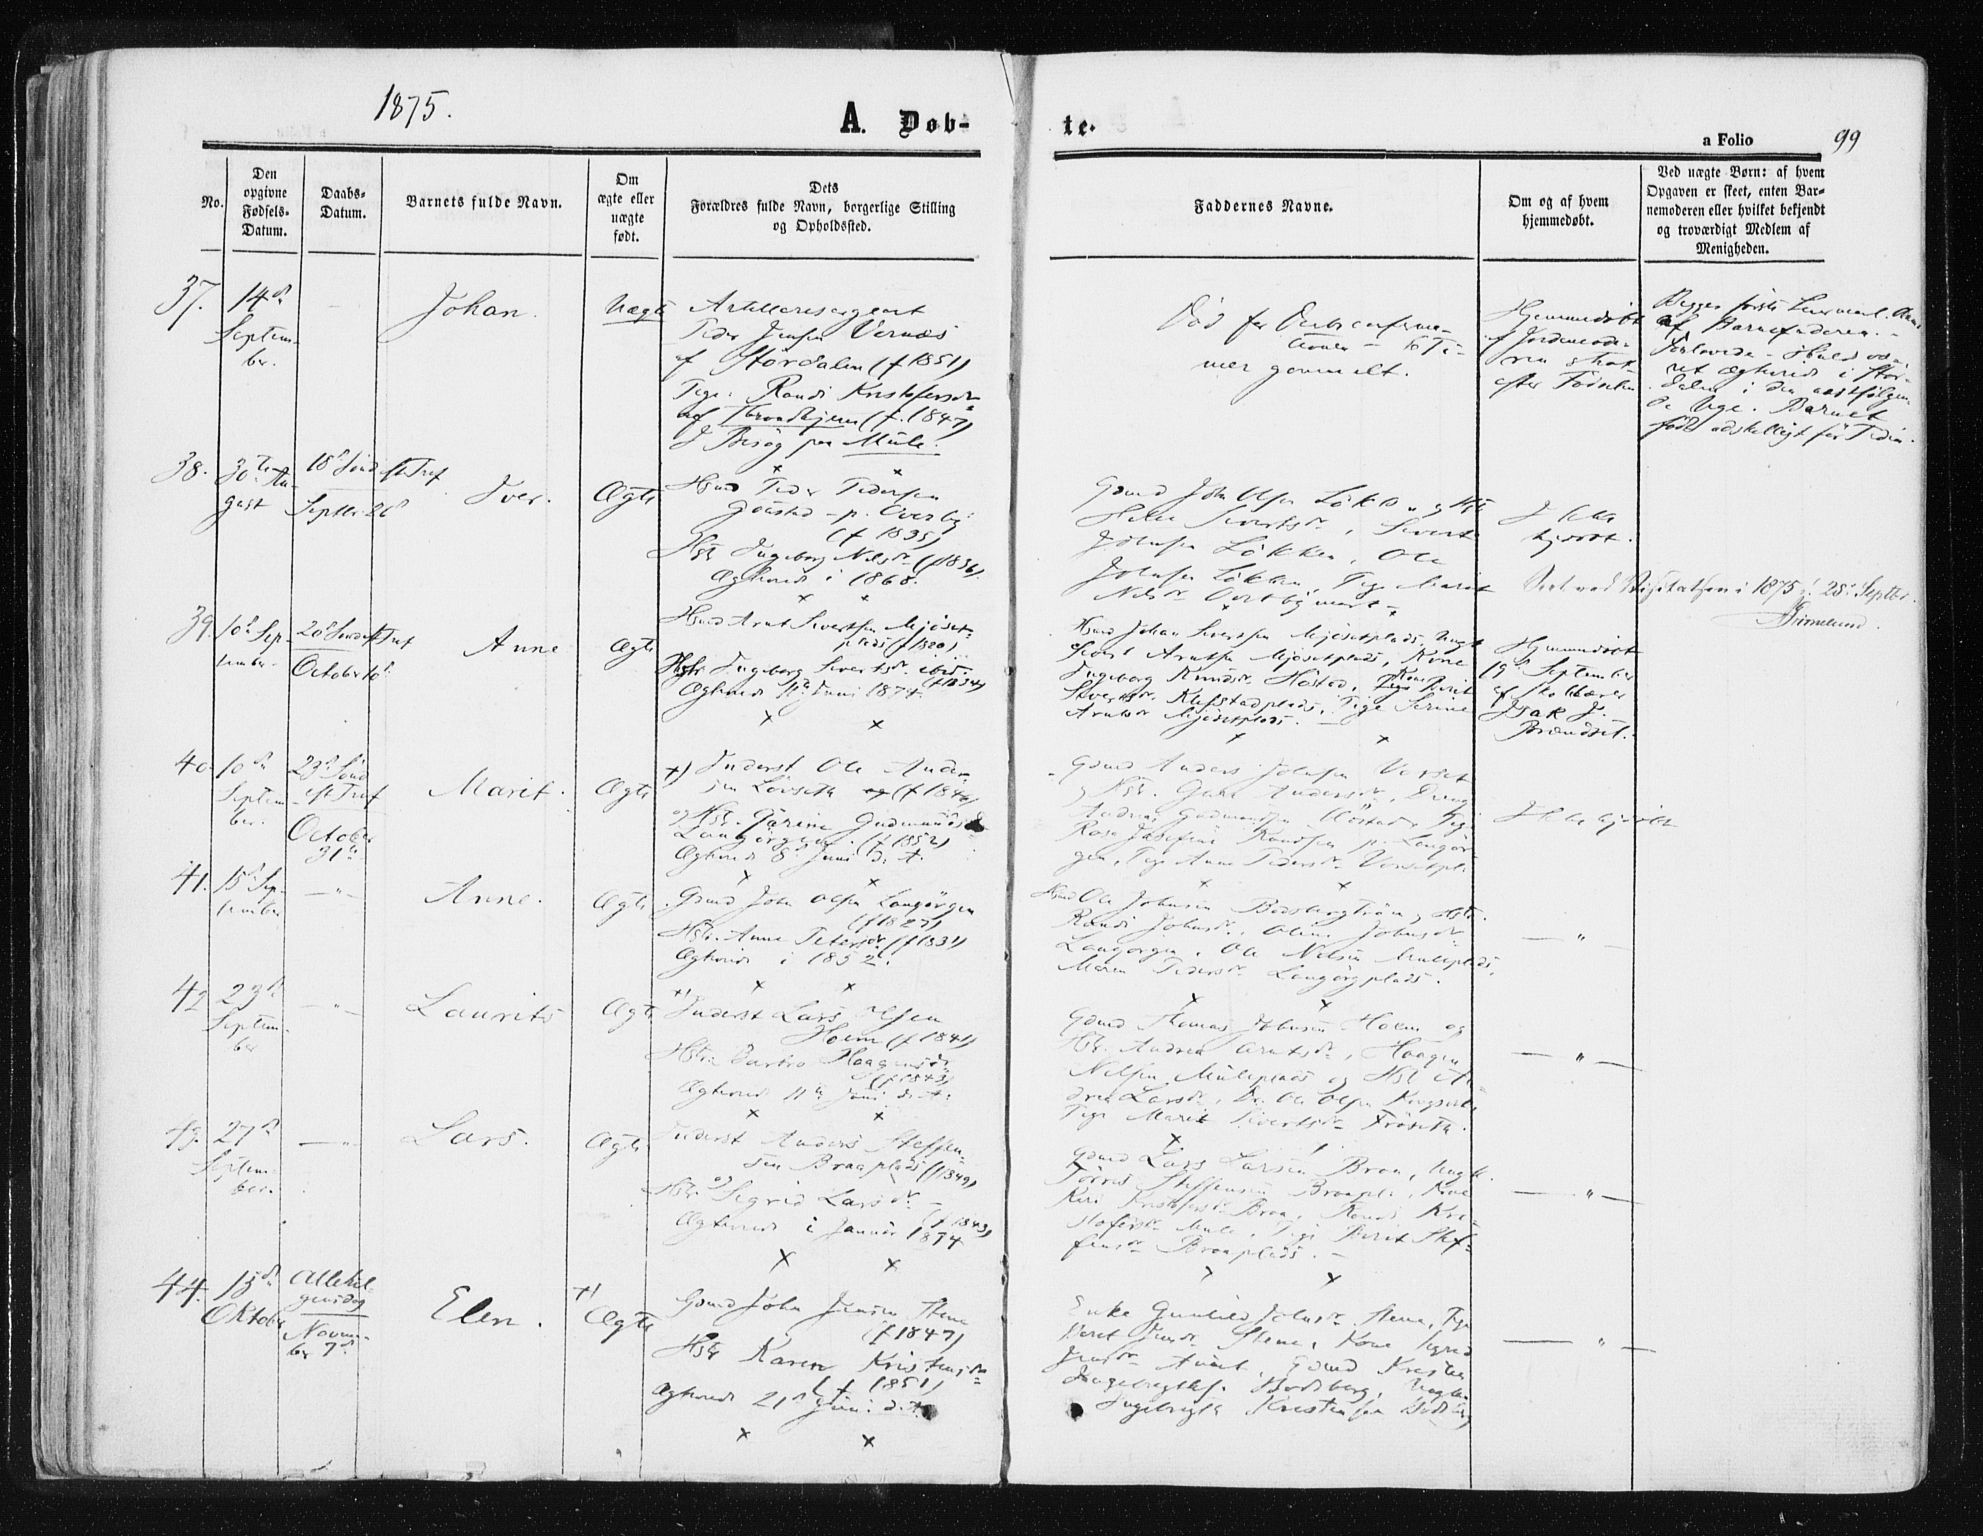 1875.
A. Døb-
te.
a Folio
99
No.
Den
opgivne
Fødsels-
Datum.
Daabs-
Datum.
Barnets fulde Navn.
Om
ægte eller
uægte
født.
Dets
Forældres fulde Navn, borgerlige Stilling
og Opholdssted.
Faddernes Navne.
Om og af hvem
hjemmedøbt.
Ved uægte Børn: af hvem
Opgaven er skeet, enten Bar-
nemoderen eller hvilket bekjendt
og troværdigt Medlem af
Menigheden.
37.
14de
Septem-
ber.
Johan.
Uægte
Artillerisergeant
Peder Jensen Vernæs
af Stördalen (f 1851)
Pige: Randi Kristofersdr
af Throndhjem (f. 1847)
I Besög paa Mule.
Död för
mer gammelt.
Hjemmedöbt
af Jordemode-
ren strax
efter Födselen
Begges förste Leiermaal.
af Barnefaderen.
Forlovede -
ret Ægteviede i Stör-
dalen i den
de Uge. Barnet
födt för Tiden.
38.
30te Au-
gust
18de Sönd eft Tref
Septbr 26de
Iver.
Ægte
Hsmd Peder Pedersen
p. Overby
(f 1835)
Hstr Ingeborg Nilsdr (f 1836)
Ægteviede i 1868.
Gamd John Olsen Lökken og Hstr
Sivertsdr, Sivert
Johnsen Lökken, Ole
Johnsen Lökken, Pige Marit
Nilsdr
I
hjdöbt.
Seet ved Visitatsen i 1875 d. 28de Septbr.
Grimelund.
39.
10de Sep-
tember.
20de Sönd eft Tref
October 10de
Anne
Ægte
Hsmd Arnt Sivertsen Mjöset-
plads (f 1820)
Hstr Ingeborg Sivertsdr ibid.
(f 1834)
Ægteviede 11te Juni 1874.
Hsmd Johan Sivertsen Mjösetplads, Ungk
Sivert Arntsen Mjösetplads, Kone
Ingeborg Knudsdr Höstad, Kone Berit
Sivertsdr Klefstadplads, Pige Serine
Arntsdr Mjösetplads.
Hjemmedöbt
19de September
af Skolelærer
Isak J.
Brændset.
40.
10de
Septem
ber.
23de Sönd
eft Tref
October
31te
Marit.
Ægte
Inderst Ole Ander-
sen Lövseth (f 1840)
og Hstr. Serine Gudmundsdr
Langörgen. (f 1852)
Ægteviede 8de Juni d. A.
Gamd Anders Johnsen Vorset
og Hstr. Andersdr, Dreng
Andreas Gudmundsen Höstad, Pige
Rosa Josefine Knudsen p. Langör-
gen, Pige Anne Pedersdr Vorsetpl.
Ikke hjdöbt
41.
15de Sep-
tember
— " —
Anne.
Ægte
Gamd John Olsen Langörgen
(f 1827)
Hstr. Anne Petersdr (f 1831)
Ægteviede i 1852.
Hsmd Ole Johnsen Bodsbergtrön og Hstr.
Randi Johnsdr, Oline Johnsdr
Langörgen, Ole Nilsen Muleplads,
Maren Pedersdr Langörgplads.
— " —
42
23de
Septem-
ber
— " —
Laurits
Ægte
Inderst Lars Olsen
Hoem (f 1841)
Hstr Barbro Haagensdr
(f 1843)
Ægteviede 11te Juni d. A.
Gamd Thomas Johnsen Hoem og
Hstr. Andrea Arntsdr, Haagen
Nilsen Muleplads og Hst An-
drea Larsdr, Dr. Ole Olsen
Pige Marit Sivertsdr Fröseth.
— " —
43.
27de
Septem-
ber.
— " —
Lars.
Ægte
Inderst Anders Steffen-
sen Braaplads (f 1849)
og
Hstr Sigrid Larsdr
(f 1843)
Ægteviede i Januar 1874
Gamd Lars Larsen Braa, Ungk.
Tørris Steffensen Braapl., Kone
Kari Kristofersdr Braa, Randi Kri-
stofersdr Mule, Pige Berit Stef-
fensdr Braaplads.
— " —
44.
15de
Oktober
Allehel-
gensdag
Novem-
ber 7de
Elen.
Ægte
Gamd John Jensen Stene
(f 1847)
Hstr Karen Kristensdr
(f 1851)
Ægteviede 21de Juni d. A.
Enke Gunhild Johnsdr Stene, Pige
Beret Jensdr Stene, Kone Sigrid
Jensdr Aunet, Gamd Kristen
Ingebrigtsen Bodsberg, Ungk.
Ingebrigt Kristensen Bodsberg
— " —